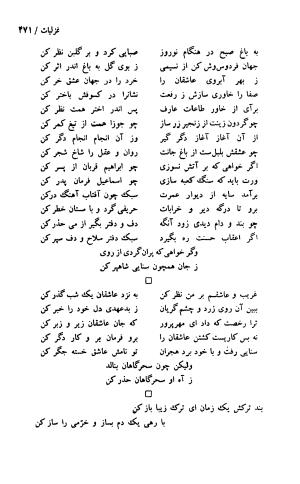 غزلیات / ۴۷۱
به باغ صبح در هنگام نوروز صبایی کرد و بر گلبن نظر کن
جهان فردوس‌وش کن از نسیمی ز بوی گل به باغ اندر اثر کن
ز بهر آبروی عاشقان را خرد را در جهان عشق خر کن
صفا را خاوری سازش ز رفعت نشاترا در کسوفش باختر کن
برآی از خاور طاعات عارف پس اندر اختر همت نظر کن
چو گردون زینت از زنجیر زر ساز چو جوزا همت از تیغ کمر کن
از آن آغاز آغاز دگر گیر وز آن انجام انجام دگر کن
چو عشقش بلبل‌ست از باغ جانت روان و عقل را شاخ شجر کن
اگر خواهی که بر آتش نسوزی چو ابراهیم قربان از پسر کن
ورت باید که سنگ کعبه سازی چو اسماعیل فرمان پدر کن
برآمد سایه از دیوار عمرت سبک چون آفتاب آهنگ درکن
برو تا درگه دیر و خرابات حریفی گرد و با مستان خطر کن
چو بند و دام دیدی زود آنگه دف و دفتر بگیر از می حذر کن
اگر اعقاب حسنت ره بگیرد سبک دفتر سلاح و دف سپر کن
وگر خواهی که پران گردی از روی
ز جان همچون سنایی شاهپر کن
غریب و عاشقم بر من نظر کن به نزد عاشقان یک شب گذر کن
ببین آن روی زرد و چشم گریان ز بدعهدی دل خود را خبر کن
ترا رخصت که داد ای مهرپرور که جان عاشقان زیر و زبر کن
نه بس کاریست کشتن عاشقان را برو فرمان بر و کار دگر کن
سنایی رفت و با خود برد هجران تو نامش عاشق خسته جگر کن
ولیکن چون سحرگاهان بنالد
ز آه او سحرگاهان حذر کن
بند ترکش یک زمان ای ترک زیبا باز کن
با رهی یک دم بساز و خرّمی را ساز کن